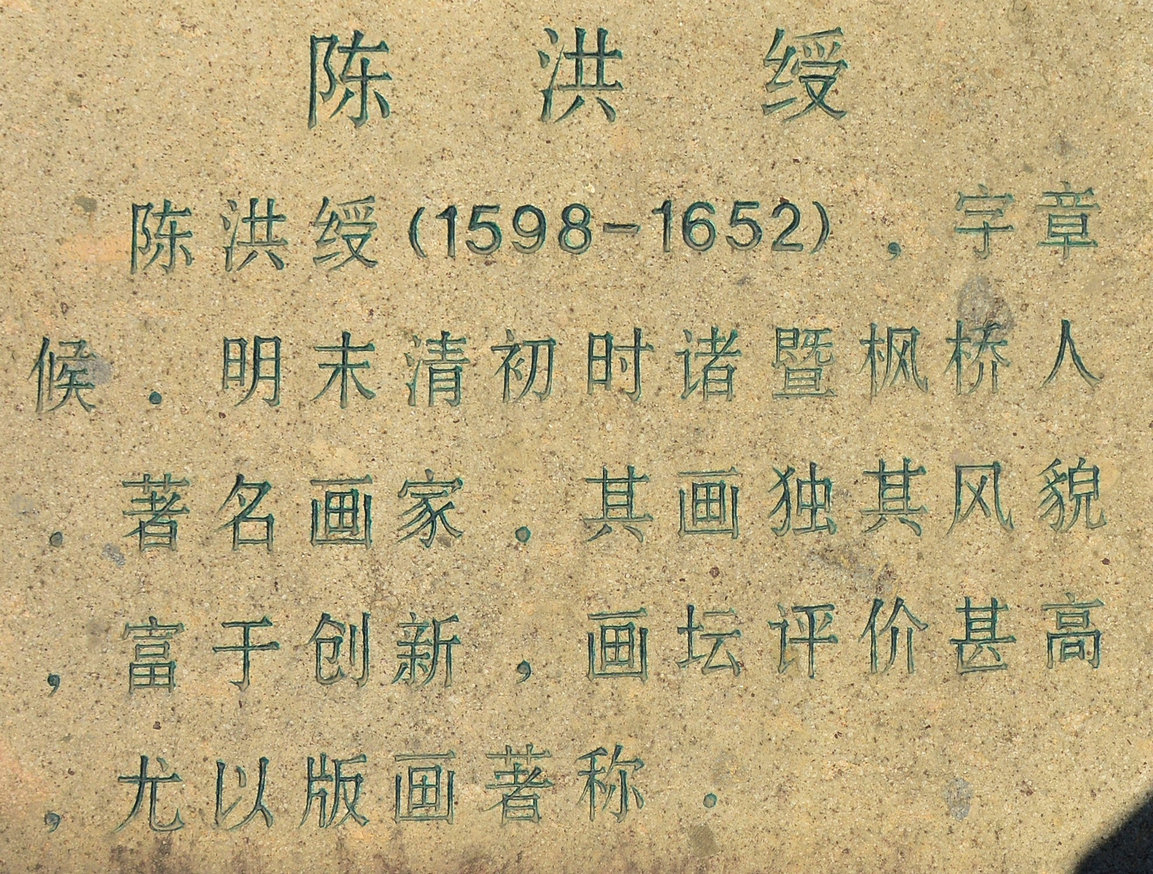 陈洪绶
陈洪绶(1598-1652),字章
候.明末清初时诸暨枫桥人
.著名画家.其画独其风貌
,富于创新,画坛评价甚高
,尤以版画著称.